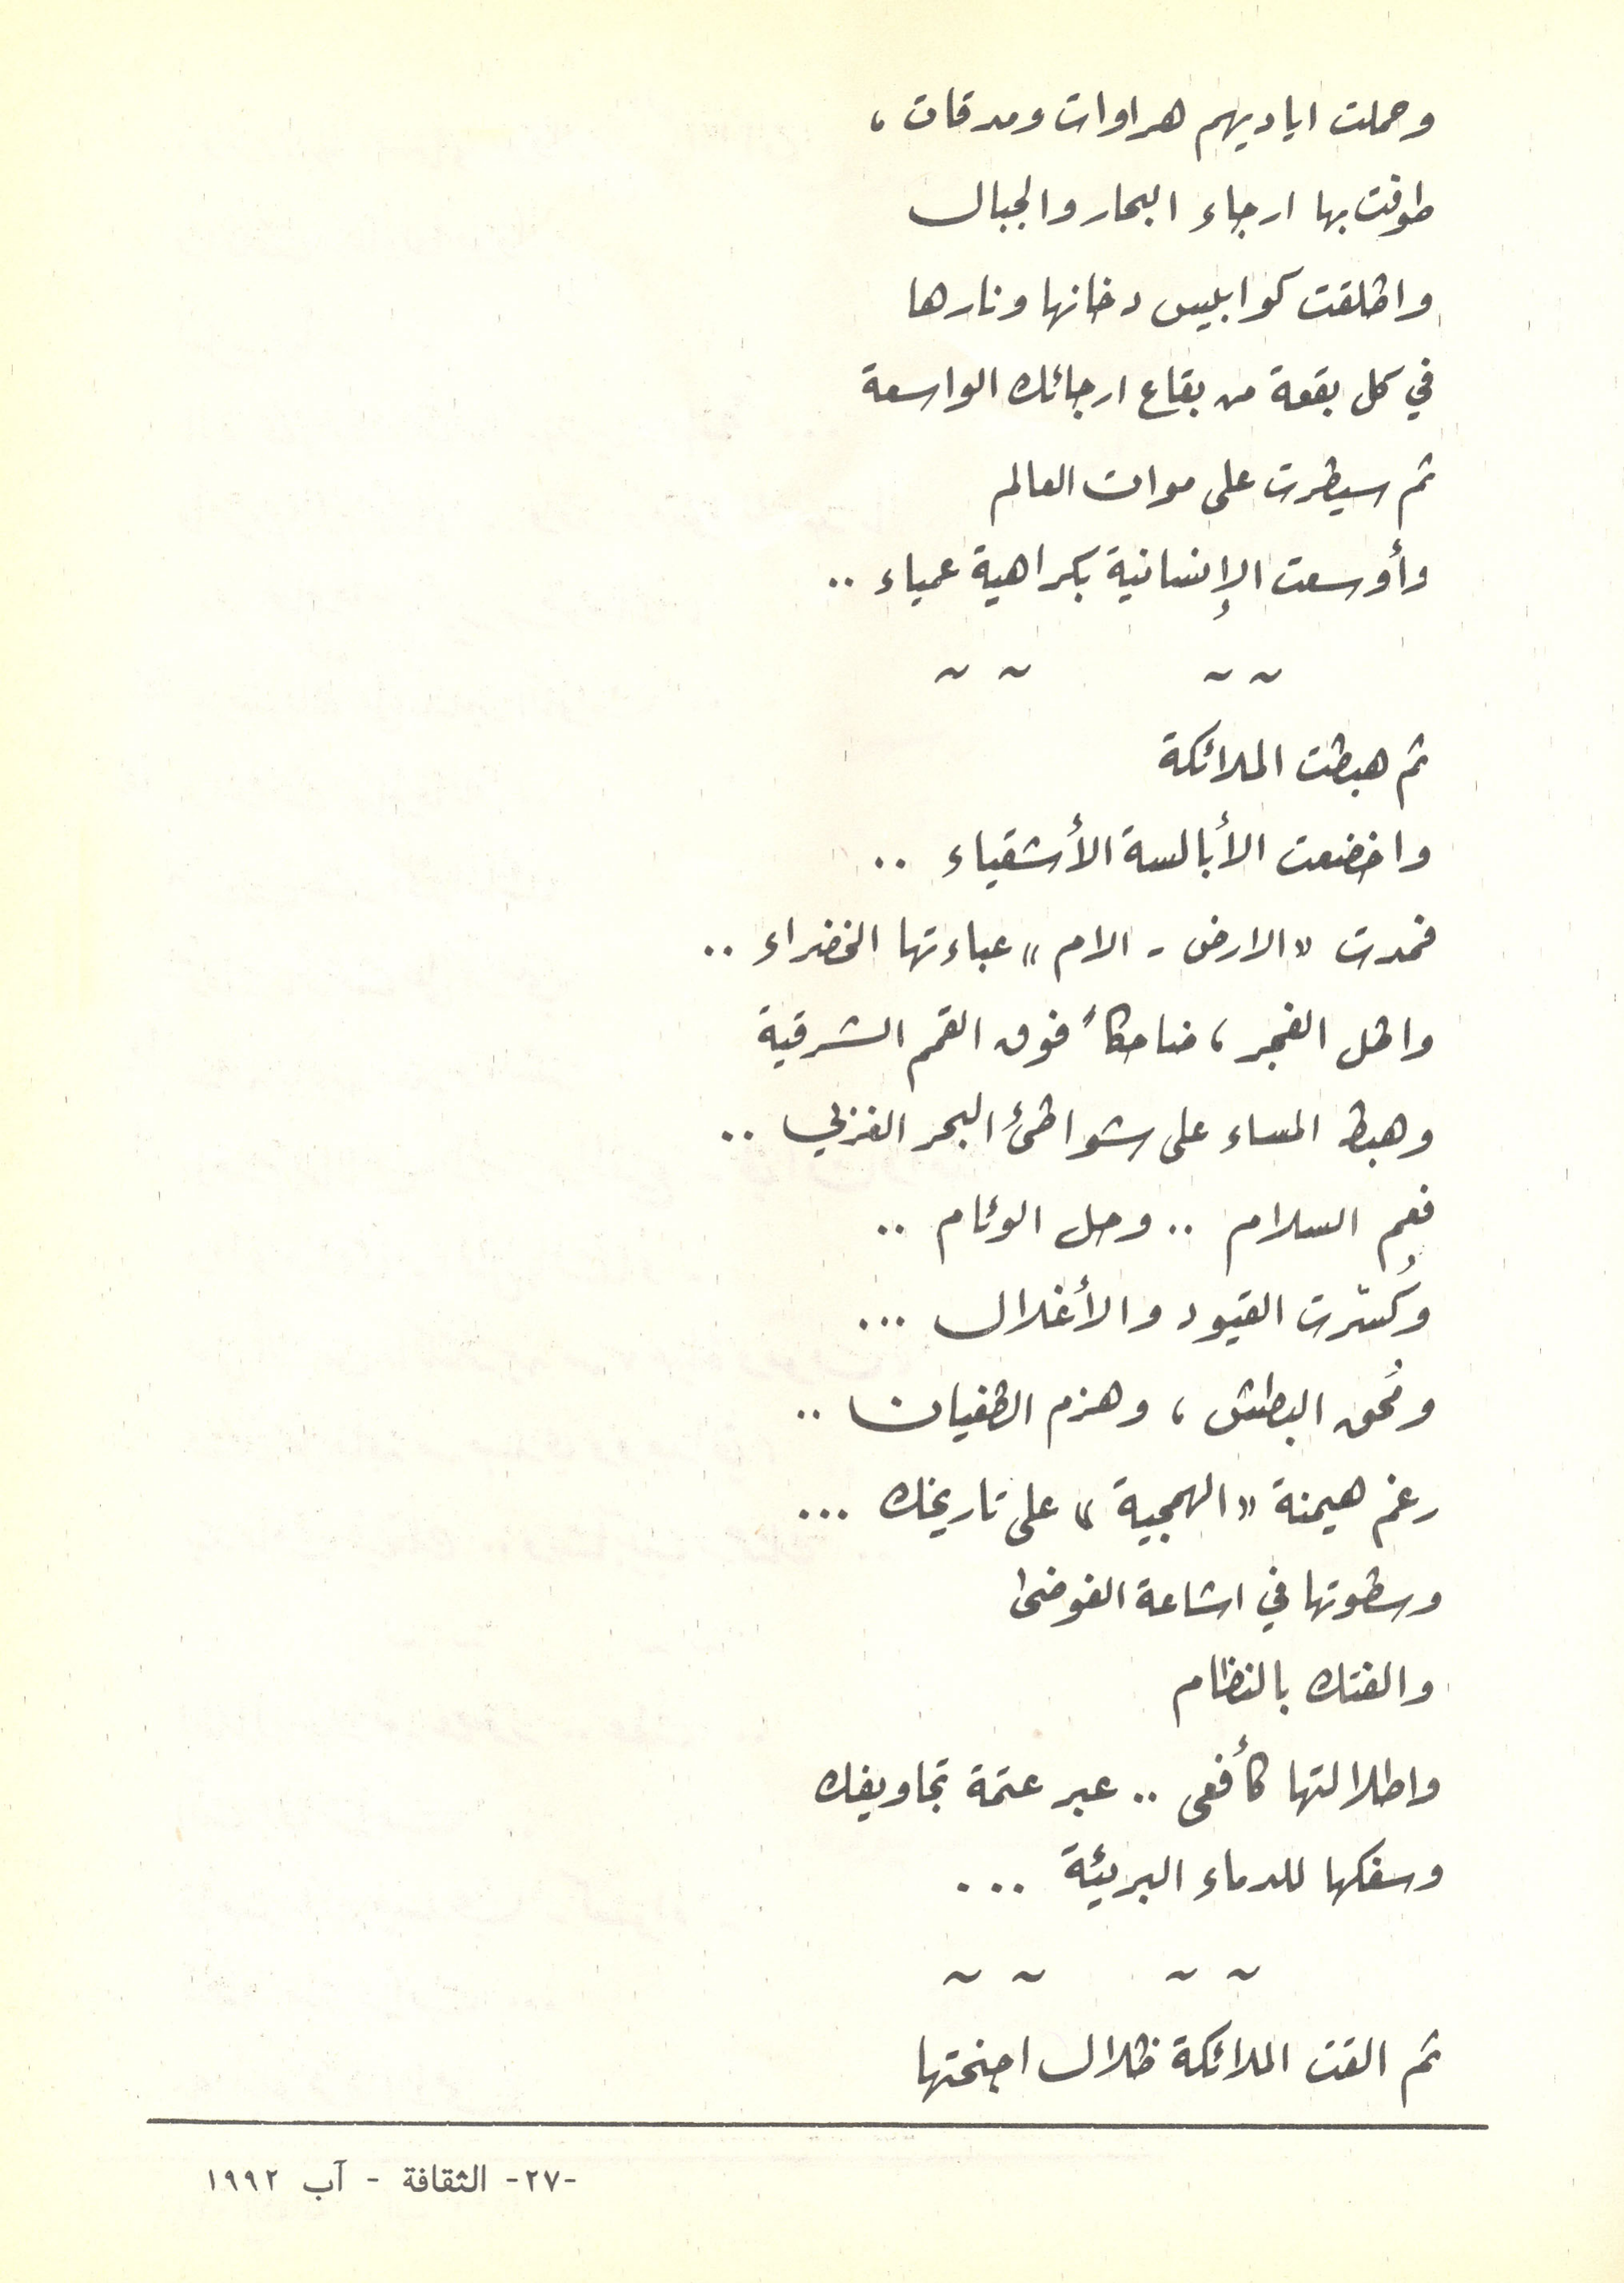 وحملت اياديهم هراوات ومدقات ،
طوفت بها ارجاء البحار والجبال
واطلقت كوابليس دخانها ونارها
في كل بقعة من بقاع ارجائك الواسعة
ثم سيطرت على موات العالم
وأوسعت الإنسانية بكراهية عمياء ..
~ ~ ~ ~
ثم هبطت الملائكة
واخضعت الأبالسة الأشقياء ..
فمدت «الارض - الام» عباءتها الخضراء ..
واطل الفجر ، ضاحكاً فوق القمم الشرقية
وهبط المساء على شواطئ البحر الغربي ..
فعم السلام .. وحل الوئام ..
وكُسّرت القيود والأغلال ...
ومُحق البطش ، وهزم الطغيان ..
رغم هيمنة «الهمجية» على تاريخك ...
وسطوتها في اشاعة الفوضى
والفتك بالنظام
واطلالتها كأفعى .. عبر عتمة تجاويفك
وسفكها للدماء البريئة ...
~ ~ ~ ~
ثم القت الملائكة ظلال اجنحتها
-٢٧- الثقافة - آب ١٩٩٢